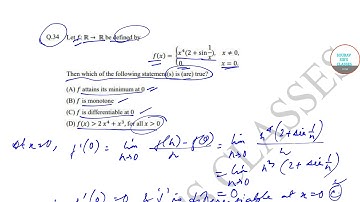 Q.34 Let f: ℝ → ℝ be defined by
SOURAV SIR'S CLASSES
f(x) = { x⁴(2 + sin 1/x), x ≠ 0,
0, x = 0.
Then which of the following statement(s) is (are) true?
(A) f attains its minimum at 0
(B) f is monotone
(C) f is differentiable at 0
(D) f(x) > 2 x⁴ + x³, for all x > 0
At x=0, f'(0) = lim h→0 f(h) - f(0) / h = lim h→0 h⁴(2 + sin 1/h) / h
= lim h→0 h³ (2 + sin 1/h)
= 0
f'(0) = 0 is differentiable at x = 0
CLASSES